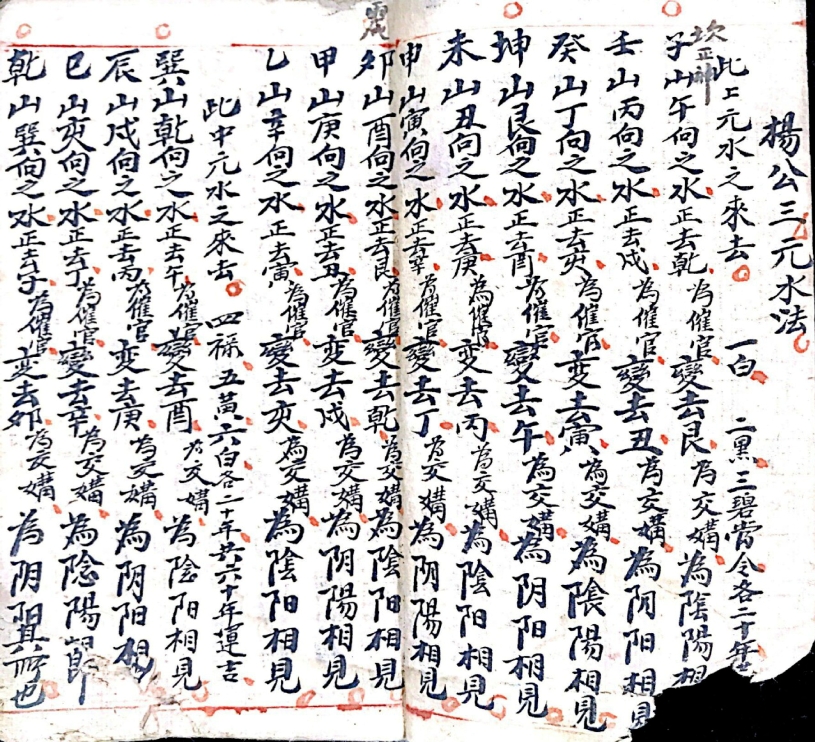 楊公三元水法
此上元水之來去 一白 二黑 三碧當令各二十年
坎正神
子山午向之水正去乾為催官變去艮為交媾為陰陽相
壬山丙向之水正去戌為催官變去丑為交媾為阴阳相見
癸山丁向之水正去亥為催官变去寅為交媾為陰陽相見
坤山艮向之水正去酉為催官變去午為交媾為阴阳相見
未山丑向之水正去庚為催官变去丙為交媾為陰阳相見
申山寅向之水正去辛為催官變去丁為交媾為阴陽相見
震
卯山酉向之水正去艮為催官變去乾為交媾為陰阳相見
甲山庚向之水正去丑為催官变去戌為交媾為阴陽相見
乙山辛向之水正去寅為催官變去亥為交媾為陰阳相見
此中元水之來去 四綠 五黃 六白各二十年共六十年運吉
巽山乾向之水正去午為催官變去酉為交媾為陰阳相見
辰山戌向之水正去丙為催官变去庚為交媾為阴阳相
巳山亥向之水正去丁為催官變去辛為交媾為陰陽
乾山巽向之水正去子為催官变去卯為交媾為阴阳其所也